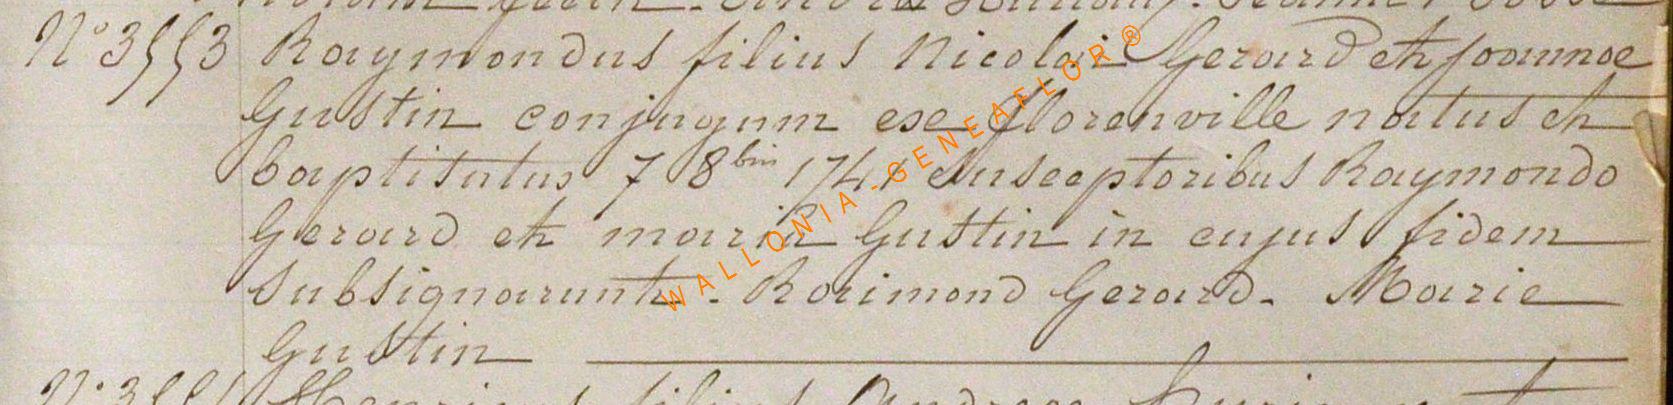 N° 3553 Raymondus filius Nicolai Gerard et joannoe
Gustin conjugum ese Florenville natus et
baptisatus 7 8bris 1741 Susceptoribus Raymondo
Gerard et maria Gustin in cujus fidem
Subsignarunt. Raimond Gerard. Marie
Gustin
WALLONIA-GENEAFLOR®